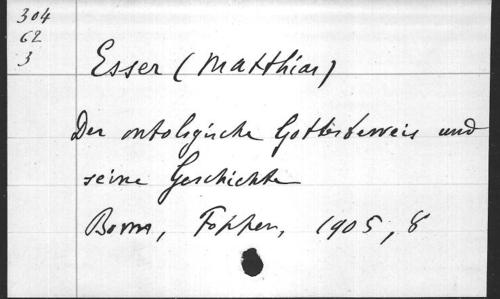 304
62
3
Esser (Matthias)
Der ontologische Gottesbeweis und
seine Geschichte
Bonn, Foppen, 1905, 8